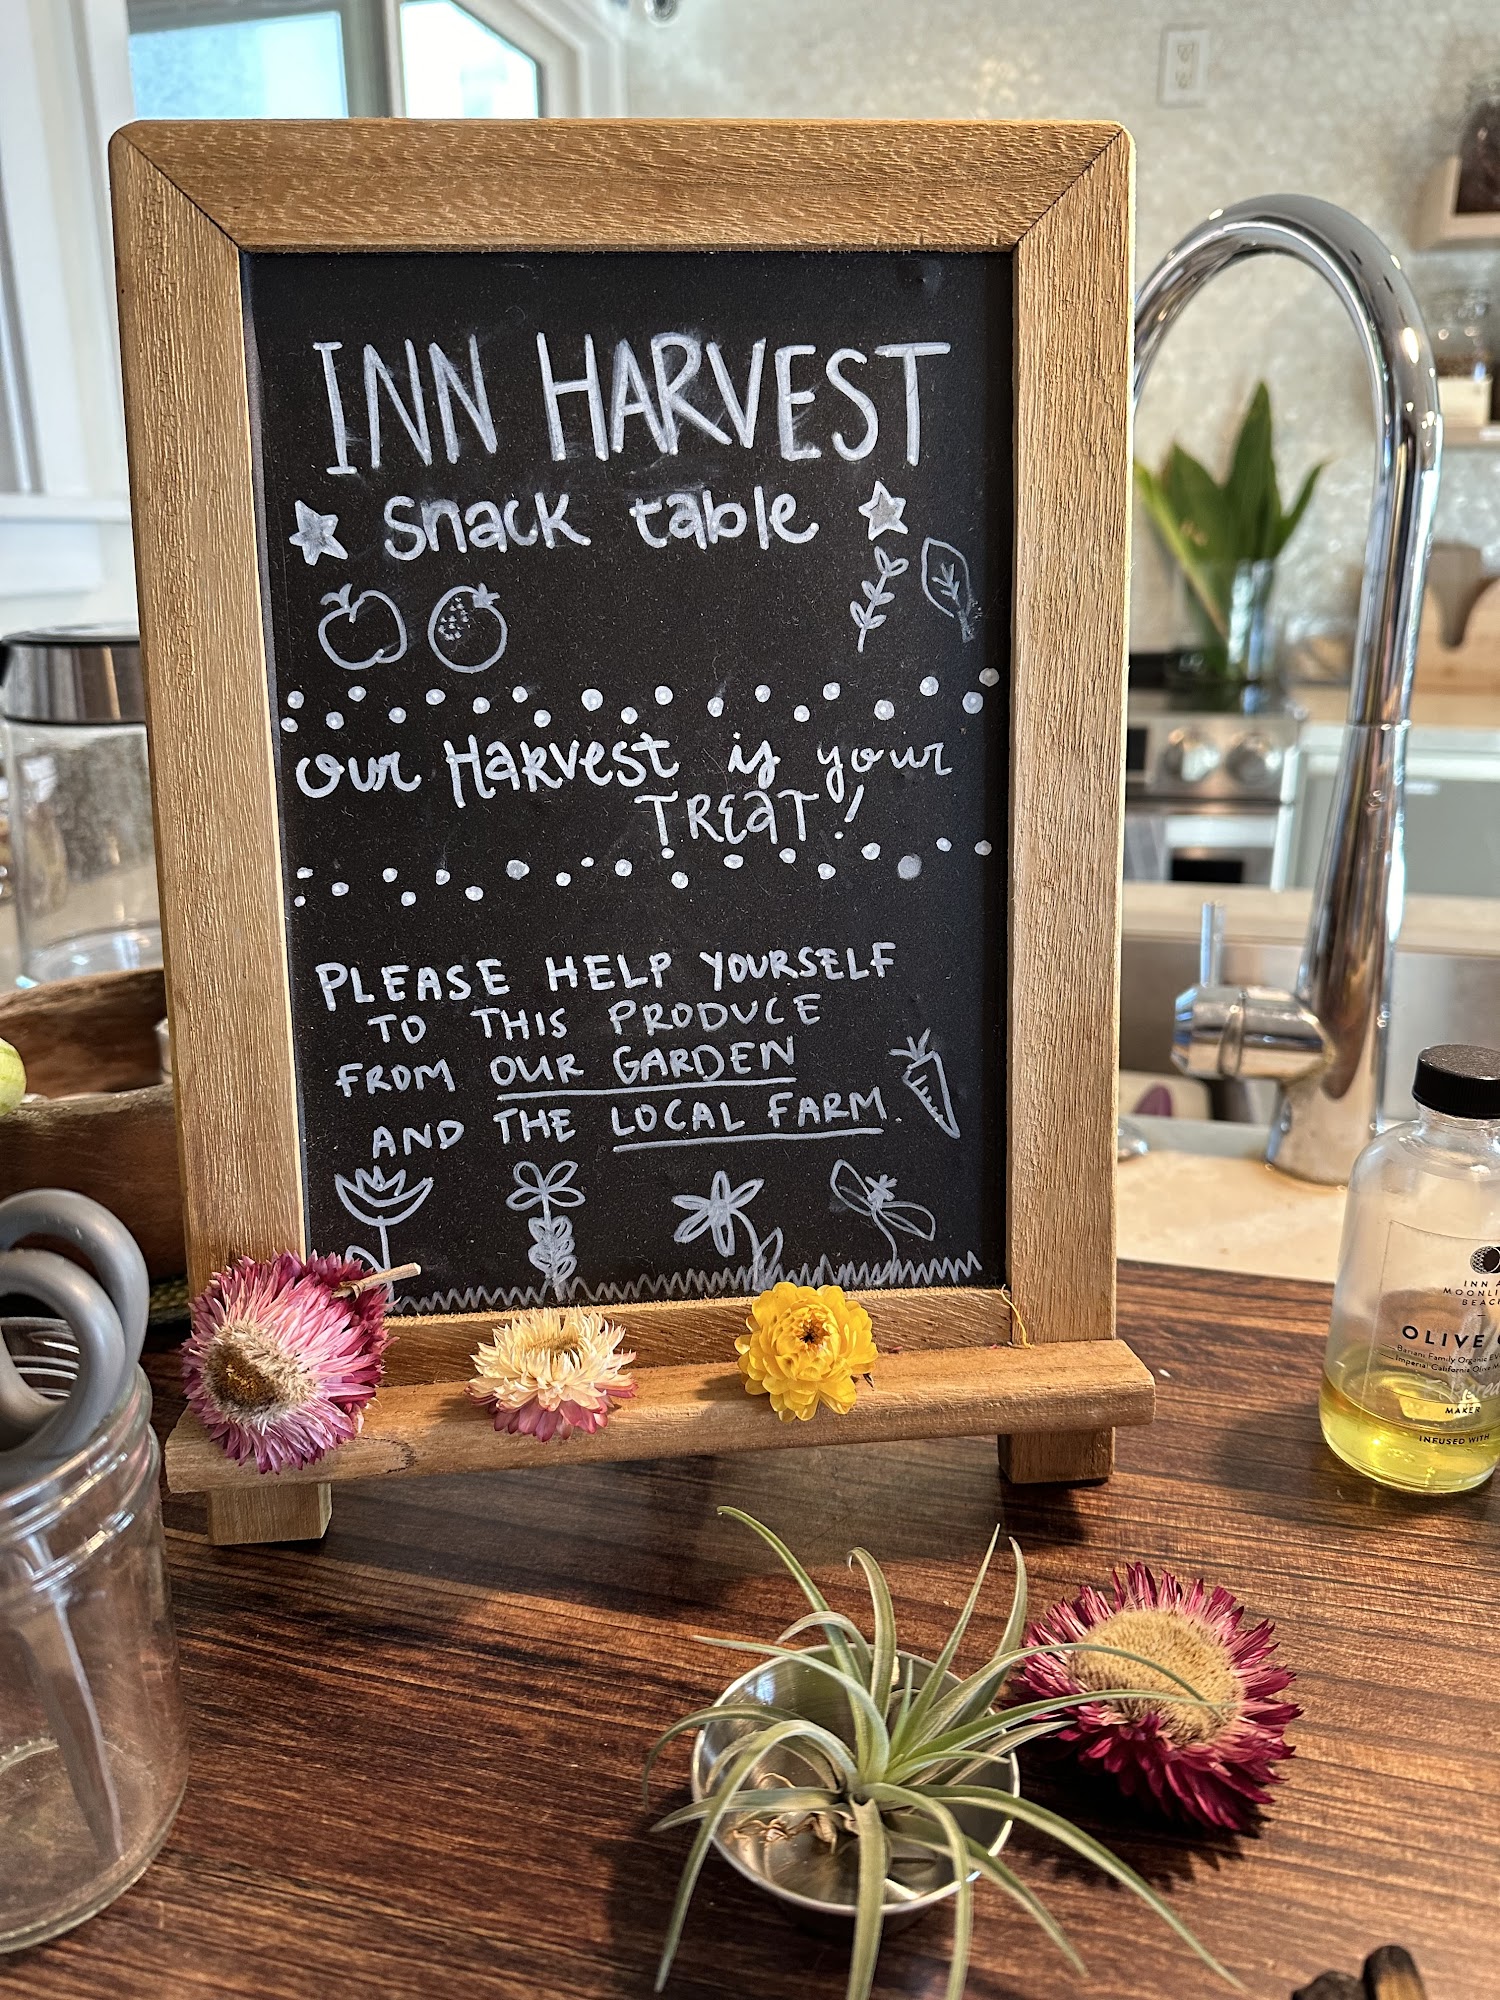 INN HARVEST
snack table
our Harvest is your
TREAT!
PLEASE HELP YOURSELF
TO THIS PRODUCE
FROM OUR GARDEN
AND THE LOCAL FARM.
INN A
MOONLI
BEAC
OLIVE
Bariani Family Organic EV
Imperial California Olive M
MAKER
INFUSED WITH